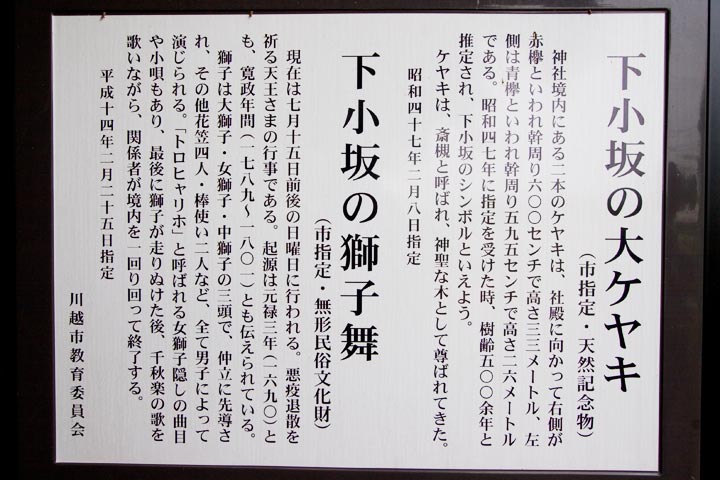 下小坂の大ケヤキ
（市指定・天然記念物）
神社境内にある二本のケヤキは、社殿に向かって右側が
赤欅といわれ幹周り六〇〇センチで高さ三三メートル、左
側は青欅といわれ幹周り五九五センチで高さ二六メートル
である。昭和四七年に指定を受けた時、樹齢五〇〇余年と
推定され、下小坂のシンボルといえよう。
ケヤキは、斎槻と呼ばれ、神聖な木として尊ばれてきた。
昭和四十七年二月八日指定
下小坂の獅子舞
（市指定・無形民俗文化財）
現在は七月十五日前後の日曜日に行われる。悪疫退散を
祈る天王さまの行事である。起源は元禄三年（一六九〇）と
も、寛政年間（一七八九～一八〇一）とも伝えられている。
獅子は大獅子・女獅子・中獅子の三頭で、仲立に先導さ
れ、その他花笠四人・棒使い二人など、全て男子によって
演じられる。「トロヒャリホ」と呼ばれる女獅子隠しの曲目
や小唄もあり、最後に獅子が走りぬけた後、千秋楽の歌を
歌いながら、関係者が境内を一回り回って終了する。
平成十四年二月二十五日指定
川越市教育委員会